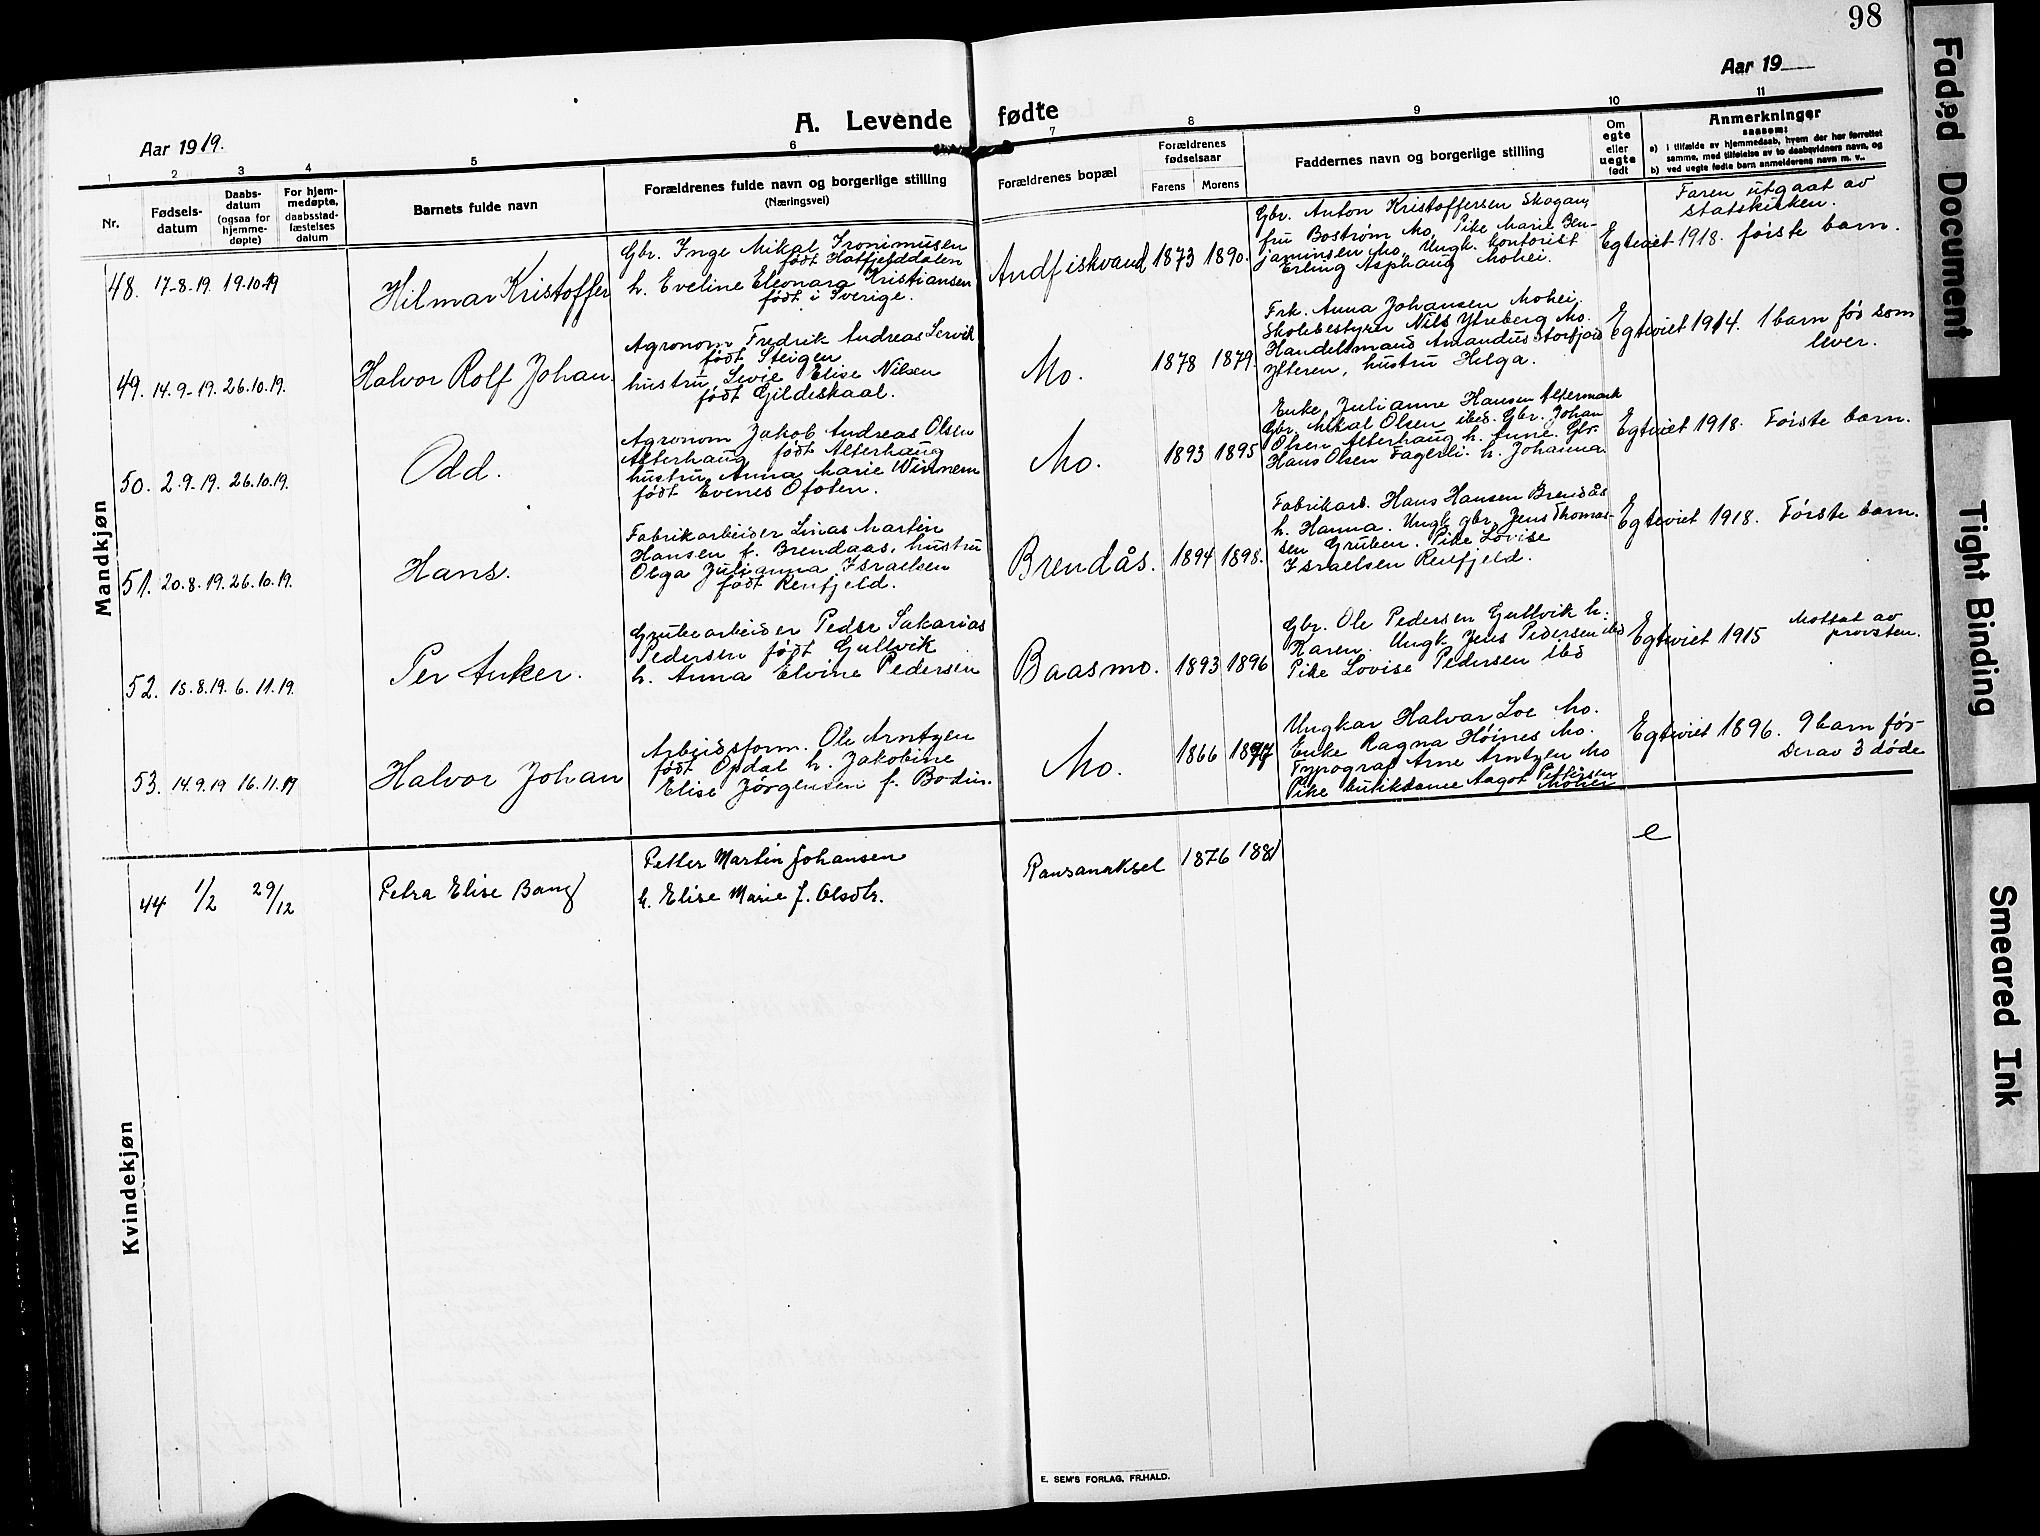 98
Aar 1919.
A. Levende fødte
Aar 19
1 2 3 4 5 6 7 8 9 10 11
Nr.
Fødsels-
datum
Daabs-
datum
(ogsaa for
hjemme-
døpte)
For hjem-
medøpte,
daabsstad-
fæstelses
datum
Barnets fulde navn
Forældrenes fulde navn og borgerlige stilling
(Næringsvei)
Forældrenes bopæl
Forældrenes
fødselsaar
Farens Morens
Faddernes navn og borgerlige stilling
Om
egte
eller
uegte
født
Anmerkninger
saasom:
a) i tilfælde av hjemmedaab, hvem der har forrettet
samme, med tilføielse av to daabsvidners navn, og
b) ved uegte fødte barn anmelderens navn m. v..
Mandkjøn
48. 17-8.19. 19.10.19
Hilmar Kristoffer
Gbr. Inge Mikal Ironimusen
født Hatfjelddalen
h. Eveline Eleonara Kristiansen
født i Sverige.
Andfiskvand 1873 1890.
Gbr. Anton Kristoffersen Skogan,
fru Bostrøm Mo, Pike Marie Ben-
jaminsen Mo. Ungk. kontorist
Erling Asphaug Mohei.
Egteviet 1918. første barn.
Faren utgaat av
statskirken.
49. 14.9-19. 26.10.19.
Halvor Rolf Johan.
Agronom Fredrik Andreas Servik
født Steigen
hustru Elise Nilsen
født Gildeskaal.
Mo. 1878 1879.
Frk. Anna Johansen Mohei.
Skolebestyrer Nils Ytreberg Mo.
Handelsmand Amandus Storfjord
Ytteren, hustru Helga.
Egteviet 1914. 1 barn før som
lever.
50. 2.9.19. 26.10.19.
Odd.
Agronom Jakob Andreas Olsen
Alterhaug født Alterhaug
hustru Anna Marie Winnem
født Evenes Ofoten.
Mo. 1893 1895
Enke Julianne Hansen Altermark
Gbr. Mikal Olsen ibid. Gbr. Johan
Olsen Alterhaug h. Anne. Gbr
Hans Olsen Fagerli. h. Johanna.
Egteviet 1918. Første barn.
51. 20.8.19. 26.10.19.
Hans.
Fabrikarbeider Linas Martin
Hansen f. Brendaas, hustru
Olga Julianna Israelsen
født Renfjeld.
Brendås. 1894 1898.
Fabrikarb. Hans Hansen Brendås
h. Hanna. Ungk. gbr. Jens Thomas-
sen Gruben. Pike Lovise
Israelsen Renfjeld.
Egteviet 1918. Første barn.
52. 15.8.19. 6.11.19.
Per Anker.
Grubearbeider Peder Sakarias
Pedersen født Gullvik
h. Anna Elvine Pedersen
Baasmo. 1893 1896
Gbr. Ole Pedersen Gullvik h.
Karen. Ungk. Jens Pedersen ibid
Pike Lovise Pedersen ibd
Egteviet 1915 Motsat av
provsten.
53. 14.9.19 16.11.19
Halvor Johan
Arbeidsform. Ole Arntzen
født Opdal h. Jakobine
Elise Jørgensen f. Bodin.
Mo. 1866 1877
Ungkar Halvar Loe Mo.
Enke Ragna Høines Mo.
Typograf Arne Arntzen Mo
Pike butikdame Aagot Pettersen
Mohei
Egteviet 1896. 9 barn før-
Derav 3 døde
Kvindekjøn
44 1/2 29/12
Petra Elise Bang
Petter Martin Johansen
h. Elise Marie f. Olsdtr.
Ransanaksel 1876 1881
e
E. SEM'S FORLAG, FR.HALD.
Faded Document
Tight Binding
Smeared Ink